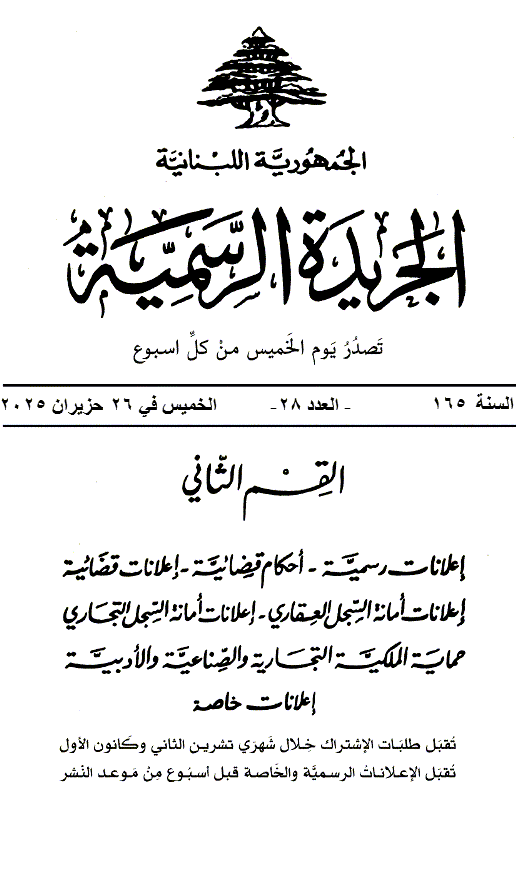 الجمهورية اللبنانية
الجريدة الرسمية
تَصدُرُ يَوم الخَميس منْ كلِّ اسبوع
السنة ١٦٥ - العدد ٢٨- الخميس في ٢٦ حزيران ٢٠٢٥
القِسْم الثّاني
إعلانات رسميَّة - أحكام قضائيَّة - إعلانات قضائية
إعلانات أمانة السِّجل العِقاري - إعلانات أمانة السِّجل التجاري
حماية الملكيَّة التجارية والصِّناعيَّة والأدبيَّة
إعلانات خاصة
تُقبَل طلبَات الإشتراك خِلال شَهرَي تشرين الثاني وكَانون الأول
تُقبَل الإعلانات الرسميَّة والخَاصة قبل أسبُوع مِنْ مَوعد النّشر